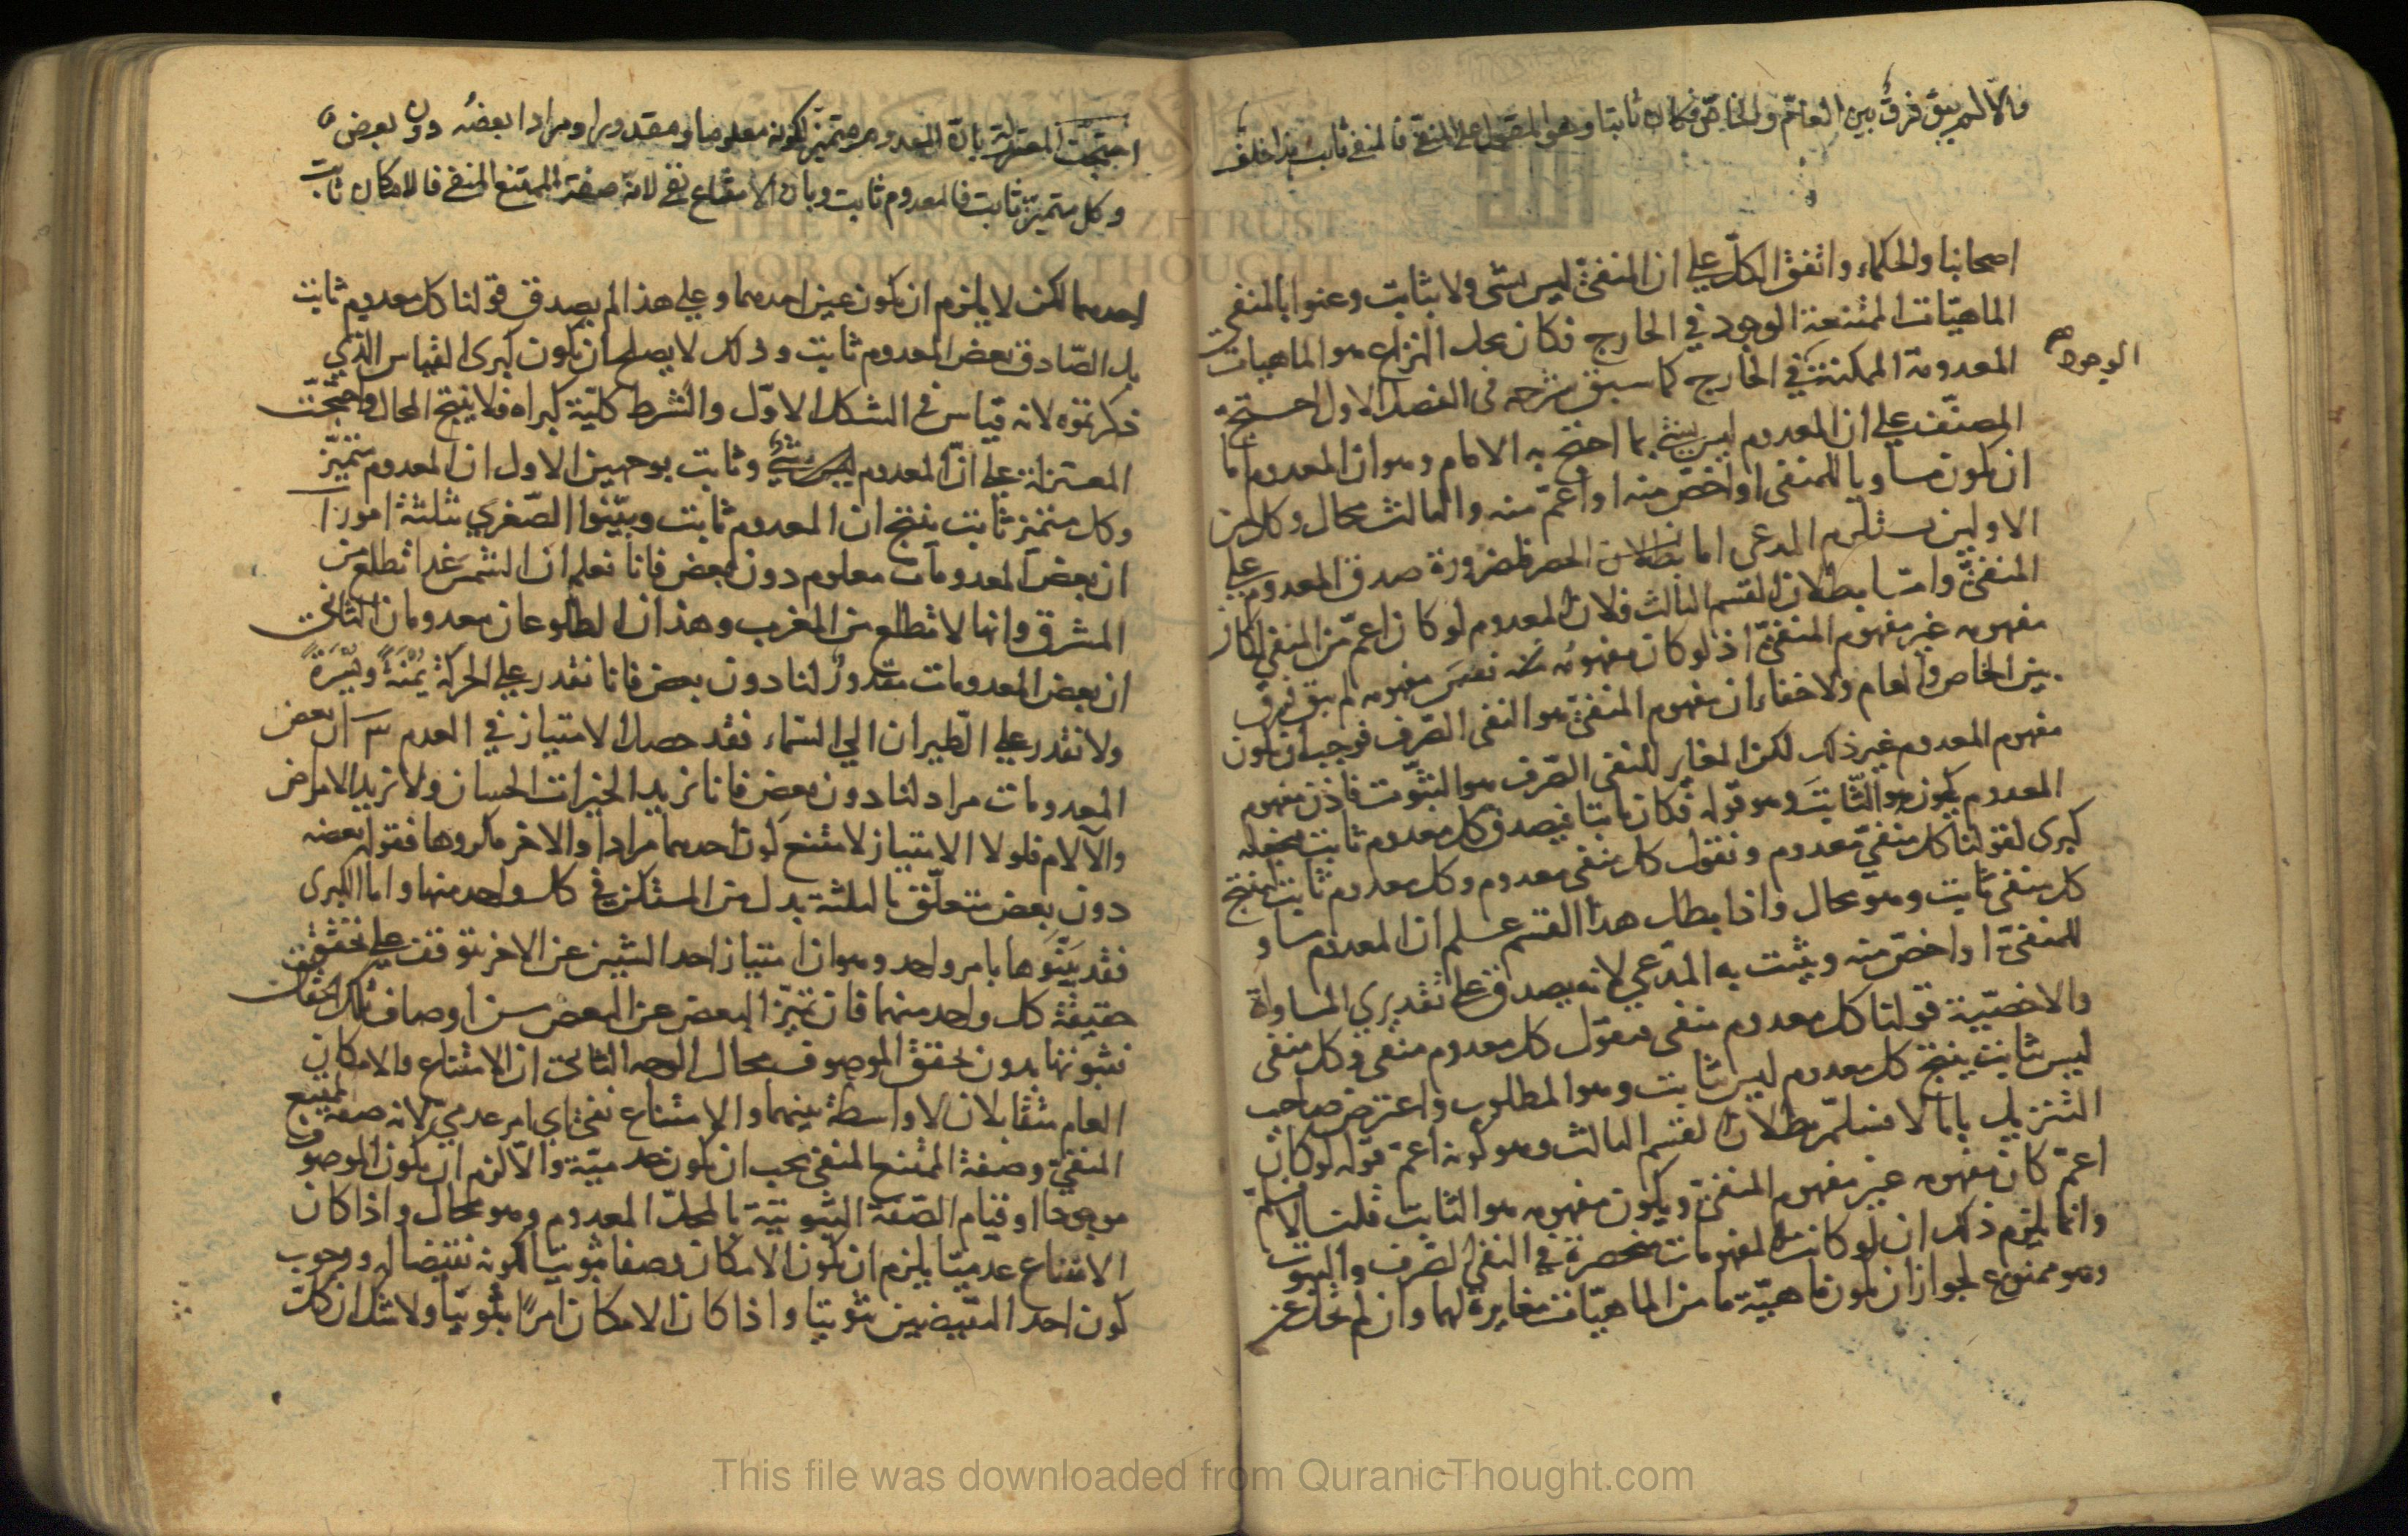 والا لم يبق فرق بين العام والخاص فكان ثابتا وهو المقول على المنفى فالمنفى ثابت هذا خلف
اصحابنا والحكماء واتفق الكل على ان المنفى ليس بشى ولا بثابت وعنوا بالمنفى
الماهيات الممتنعة الوجود في الخارج فكان محل النزاع هو الماهيات
المعدومة الممكنة في الخارج كما سبق شرحه فى الفصل الاول احتج
الوجود
المصنف على ان المعدوم ليس بشئ بما احتج به الامام وهو ان المعدوم اما
ان يكون مساويا للمنفى او اخص منه او اعم منه والثالث محال وكل من
الاولين يستلزم المدعى اما بطلان الحصر فلضرورة صدق المعدوم على
المنفى واما بطلان القسم الثالث فلان المعدوم لو كان اعم من المنفى لكان
مفهومه غير مفهوم المنفى اذ لو كان مفهومه نفس مفهومه لم يبق فرق
بين الخاص والعام ولا خفاء ان مفهوم المنفى هو النفى الصرف فوجب ان يكون
مفهوم المعدوم غير ذلك لكن المغاير للنفى الصرف هو الثبوت فاذن مفهوم
المعدوم يكون هو الثابت وهو قوله فكان ثابتا فيصدق كل معدوم ثابت نجعله
كبرى لقولنا كل منفى معدوم ونقول كل منفى معدوم وكل معدوم ثابت ينتج
كل منفى ثابت وهو محال واذا بطل هذا القسم علم ان المعدوم مساو
للمنفى او اخص منه ويثبت به المدعى لانه يصدق على تقديرى المساواة
والاخصية قولنا كل معدوم منفى فنقول كل معدوم منفى وكل منفى
ليس بثابت ينتج كل معدوم ليس بثابت وهو المطلوب واعترض صاحب
التنزيل بانا لا نسلم بطلان القسم الثالث وهو كونه اعم قوله لو كان
اعم كان مفهومه غير مفهوم المنفى ويكون مفهومه هو الثابت قلنا لا نسلم
وانما يلزم ذلك ان لو كانت المفهومات منحصرة في النفى الصرف والثبوت
وهو ممنوع لجواز ان يكون ماهية ما من الماهيات مغايرة لهما وان لم تخل عن
احتجت المعتزلة بان المعدوم متميز لكونه معلوما ومقدورا ومرادا بعضه دون بعض
وكل متميز ثابت فالمعدوم ثابت وبان الامتناع نفى لانه صفة الممتنع المنفى فالامكان ثابت
احدهما لكن لا يلزم ان يكون عين احدهما وعلى هذا لم يصدق قولنا كل معدوم ثابت
بل الصادق بعض المعدوم ثابت وذلك لا يصلح ان يكون كبرى القياس الذي
ذكرتموه لانه قياس فى الشكل الاول والشرط كلية كبراه فلا ينتج المحال واحتجت
المعتزلة على ان المعدوم شئ وثابت بوجهين الاول ان المعدوم متميز
وكل متميز ثابت ينتج ان المعدوم ثابت وبينوا الصغري بثلثة امور ا
ان بعض المعدومات معلوم دون بعض فانا نعلم ان الشمس غدا تطلع من
المشرق وانها لا تطلع من المغرب وهذان الطلوعان معدومان الثانى
ان بعض المعدومات مقدور لنا دون بعض فانا نقدر على الحركة يمنة ويسرة
ولا نقدر على الطيران الي السماء فقد حصل الامتياز في العدم ان بعض
المعدومات مراد لنا دون بعض فانا نريد الخيرات الحسان ولا نريد الامراض
والآلام فلولا الامتياز لامتنع كون احدهما مرادا والاخر مكروها فقوله بعضه
دون بعض متعلق بالثلثة بدل من المستكن في كل واحد منها واما الكبرى
فقد بينوها بامر واحد وهو ان امتياز احد الشيئين عن الاخر يتوقف على تحقق
حقيقة كل واحد منهما فان تميز البعض عن البعض من اوصاف تلك الحقائق
فثبوتها بدون تحقق الموصوف محال الوجه الثانى ان الامتناع والامكان
العام متقابلان لا واسطة بينهما والامتناع نفى اي امر عدمي لانه صفة الممتنع
المنفي وصفة الممتنع المنفى يجب ان يكون عدمية والا لزم ان يكون الموصوف
موجودا او قيام الصفة الثبوتية بالمحل المعدوم وهو محال واذا كان
الامتناع عدميا يلزم ان يكون الامكان وصفا ثبوتيا لكونه نقيضا له ووجوب
كون احد النقيضين ثبوتيا واذا كان الامكان امرا ثبوتيا ولا شك ان كل
THE PRINCE GHAZI TRUST
FOR QUR'ANIC THOUGHT
This file was downloaded from QuranicThought.com